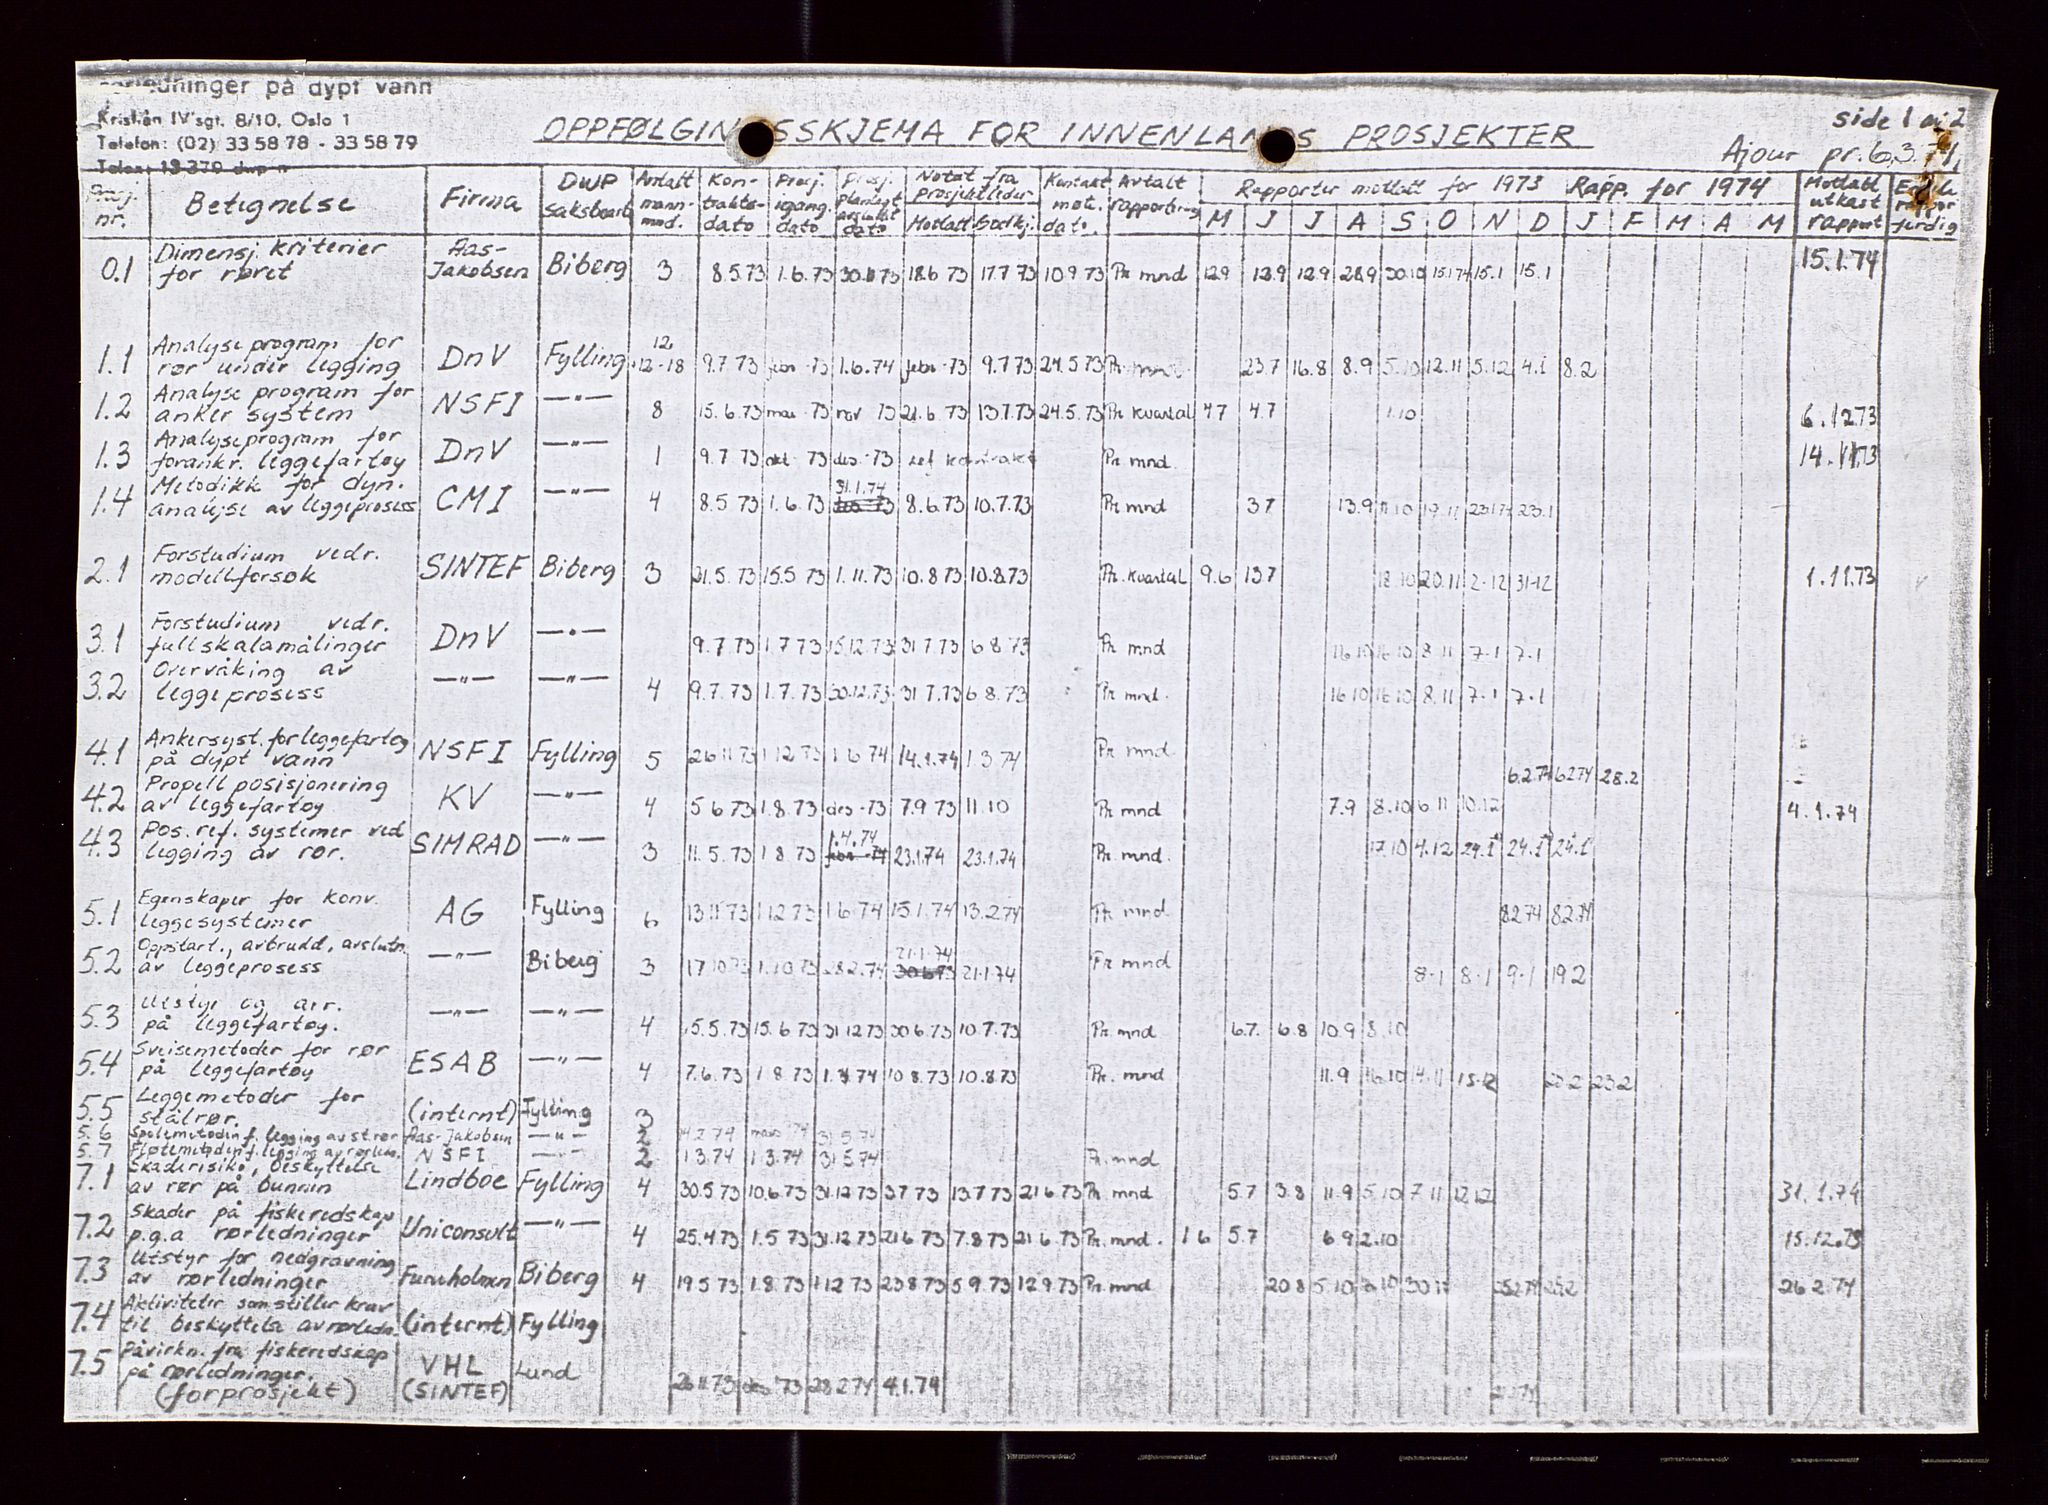 ledninger på dypt vann
Kristian IV'sgt. 8/10, Oslo 1
Telefon: (02) 33 58 78 - 33 58 79
Telex: 18 379 dwp n
OPPFØLGIN SSKJEMA FOR INNENLAN S PROSJEKTER
side 1 av 2
Ajour pr. 6.3.74
Prosj. nr. Betegnelse Firma DWP saksbearb. Avtalt mann-mnd. Kon-trakts-dato Prosj. igang. dato Prosj. planlagt avsluttet dato Notat fra prosjektleder Mottatt Godkj. Kontakt møt. dato. Avtalt rapportering Rapporter mottatt for 1973 Rapp. for 1974 Mottatt utkast rapport ferdig
M J J A S O N D J F M A M
0.1 Dimensj. kriterier for røret Aas-Jakobsen Biberg 3 8.5.73 1.6.73 30.11.73 18.6.73 17.7.73 10.9.73 Pr. mnd 12.9 12.9 12.9 28.9 30.10 15.1.74 15.1 15.1 15.1.74
1.1 Analyseprogram for rør under legging DnV Fylling 12 12-18 9.7.73 febr.-73 1.6.74 febr.-73 9.7.73 24.5.73 Pr. mnd. 23.7 16.8 8.9 5.10 12.11 5.12 4.1 8.2
1.2 Analyse program for anker system NSFI —"— 8 15.6.73 mai -73 nov 73 21.6.73 13.7.73 24.5.73 Pr. kvartal 4.7 4.7 1.10 6.12.73
1.3 Analyseprogram for forankr. leggefartøy DnV —"— 1 9.7.73 okt. 73 des.-73 ref kontrakt Pr. mnd. 14.11.73
1.4 Metodikk for dyn. analyse av leggeprosess CMI —"— 4 8.5.73 1.6.73 31.1.74 8.6.73 10.7.73 Pr. mnd 3.7 13.9 11.10 19.11 23.1.74 23.1
2.1 Forstudium vedr. modellforsøk SINTEF Biberg 3 21.5.73 15.5.73 1.11.73 10.8.73 10.8.73 Pr. kvartal 9.6 13.7 18.10 20.11 2-12 31-12 1.11.73
3.1 Forstudium vedr. fullskalamålinger DnV —"— 9.7.73 1.7.73 15.12.73 31.7.73 6.8.73 Pr. mnd 16.10 16.10 8.11 7.1 7.1
3.2 Overvåking av leggeprosess —"— —"— 4 9.7.73 1.7.73 30.12.73 31.7.73 6.8.73 Pr. mnd. 16.10 16.10 8.11 7.1 7.1
4.1 Ankersyst. for leggefartøy på dypt vann NSFI Fylling 5 26.11.73 1.12.73 1.6.74 14.1.74 1.3.74 Pr. mnd 6.2.74 6.2.74 28.2
4.2 Propell posisjonering av leggefartøy KV —"— 4 5.6.73 1.8.73 des.-73 7.9.73 11.10 Pr. mnd 7.9 8.10 6.11 10.12 4.1.74
4.3 Pos. ref. systemer ved legging av rør. SIMRAD —"— 3 11.5.73 1.8.73 1.4.74 febr.-74 23.1.74 23.1.74 Pr. mnd. 17.10 4.12 24.1 24.1 24.1
5.1 Egenskaper for konv. leggesystemer AG Fylling 6 13.11.73 1.12.73 1.6.74 15.1.74 13.2.74 Pr. mnd. 8.2.74 8.2.74
5.2 Oppstart., avbrudd, avslutn. av leggeprosess —"— Biberg 3 17.10.73 1.10.73 28.2.74 21.1.74 30.6.73 21.1.74 Pr. mnd 8.1 8.1 9.1 19.2
5.3 Utstyr og arr. på leggefartøy. —"— —"— 4 15.5.73 15.6.73 31.12.73 30.6.73 10.7.73 Pr. mnd. 6.7. 6.8 10.9 8.10
5.4 Sveisemetoder for rør på leggefartøy ESAB —"— 4 7.6.73 1.8.73 1.4.74 10.8.73 10.8.73 Pr. mnd 11.9 16.10 4.11 15.12 23.2 23.2
5.5 Leggemetoder for stålrør. (internt) Fylling 3
5.6 Spolemetoden f. legging av st.rør Aas-Jakobsen —"— 2 4.2.74 mars '74 31.5.74
5.7 Fløtemetoden f. legging av rørledn. NSFI —"— 2 1.3.74 1.3.74 31.5.74 Pr. mnd
7.1 Skaderisiko, beskyttelse av rør på bunnen Lindboe Fylling 4 30.5.73 10.6.73 31.12.73 3.7.73 13.7.73 21.6.73 Pr. mnd 5.7 3.8 11.9 5.10 7.11 12.12 31.1.74
7.2 Skader på fiskeredskap p.g.a rørledninger Uniconsult —"— 4 25.4.73 1.5.73 31.12.73 21.6.73 7.8.73 21.6.73 Pr. mnd. 1.6 5.7 6.9 2.10 15.12.73
7.3 Utstyr for nedgravning av rørledninger Furuholmen Biberg 4 19.5.73 1.8.73 1.12.73 23.8.73 5.9.73 12.9.73 Pr. mnd 20.8 5.10 30.11 25.2.74 25.2 26.2.74
7.4 Aktiviteter som stiller krav til beskyttelse av rørledn. (internt) Fylling
7.5 Påvirkn. fra fiskeredskap på rørledninger. (forprosjekt) VHL (SINTEF) Lund 26.11.73 des '73 28.2.74 4.1.74